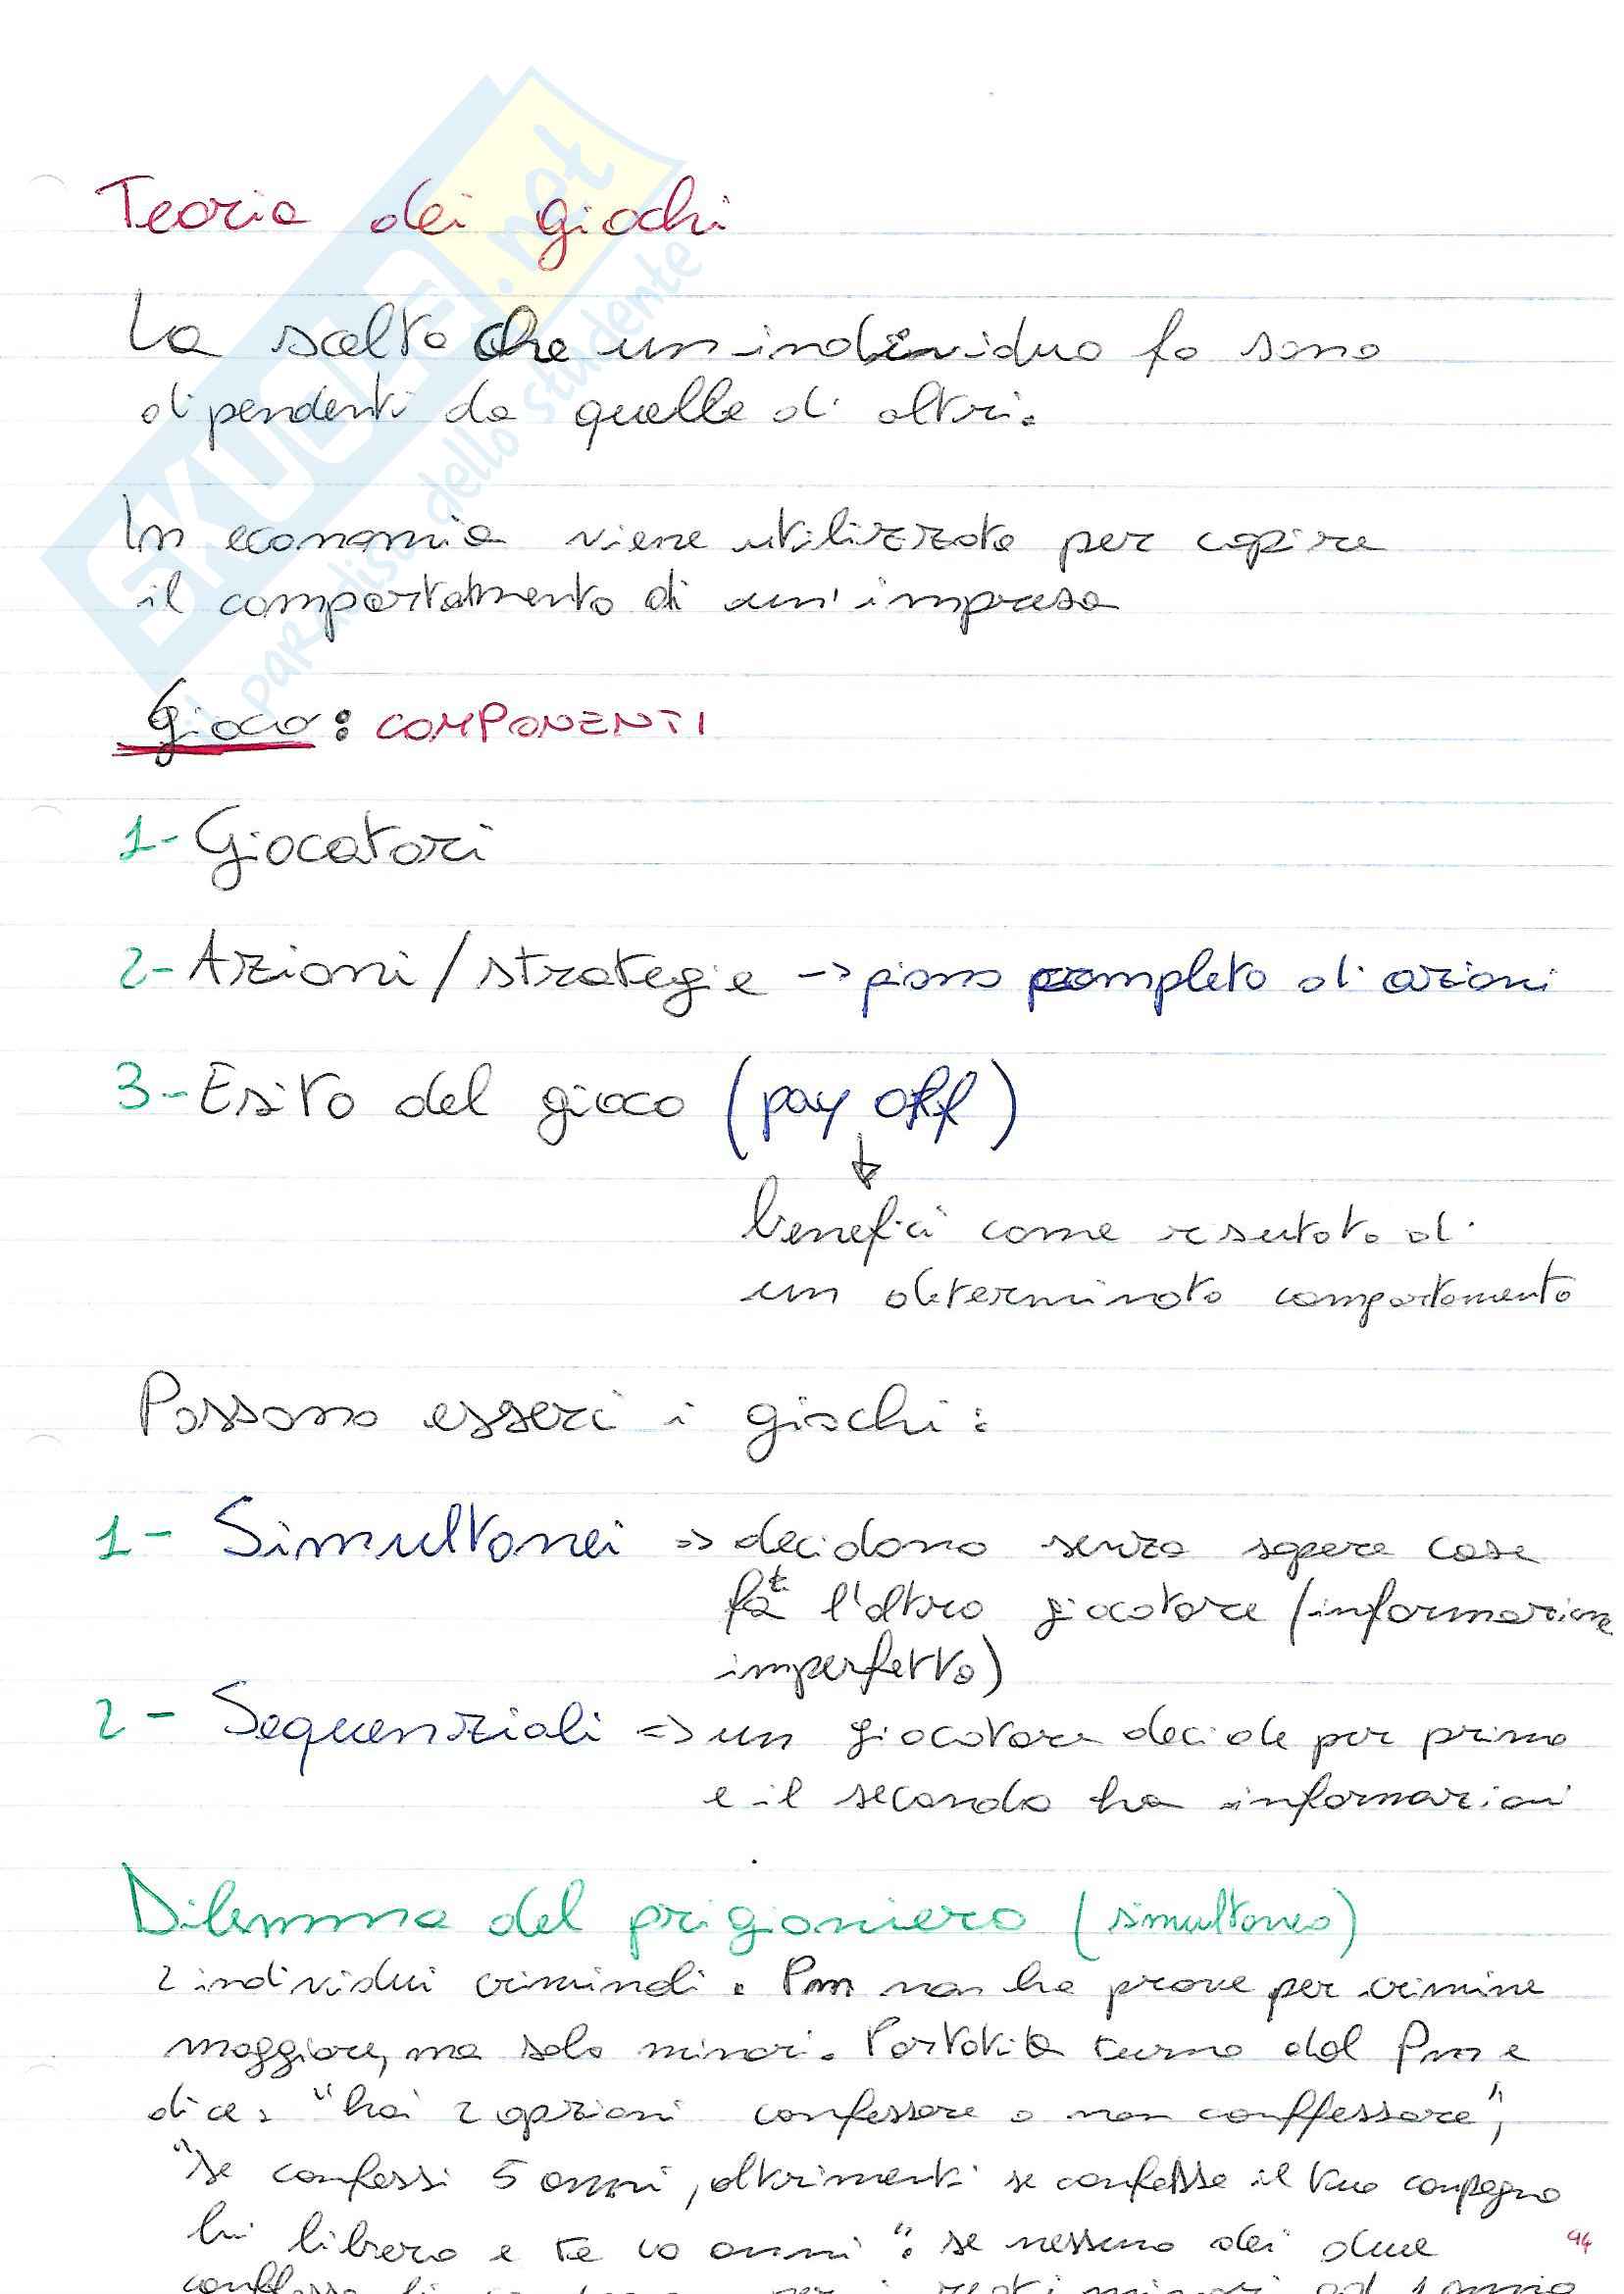 SKUOLA.net
paradiso dello studente
Teoria dei giochi
La scelta che un individuo fa sono
dipendenti da quelle di altri.
In economia viene utilizzata per capire
il comportatmento di un'impresa
Gioco: COMPONENTI
1- Giocatori
2- Azioni/strategie -> piano completo di azioni
3- Esito del gioco (pay off)
benefici come resutato di
un determinato comportamento
Possono esseri i giochi:
1- Simultanei => decidono senza sapere cosa
fa l'altro giocatore (informazione
imperfetta)
2- Sequenziali => un giocatore decide per primo
e il secondo ha informazioni
Dilemma del prigioniero (simultaneo)
2 individui criminali. Pm non ha prove per crimine
maggiore, ma solo minori. Portati a turno dal Pm e
dice: "hai 2 opzioni confessare o non conffessare",
"se confessi 5 anni, altrimenti se confessa il tuo compagno
lui libero e te 10 anni". se nessuno dei due
94